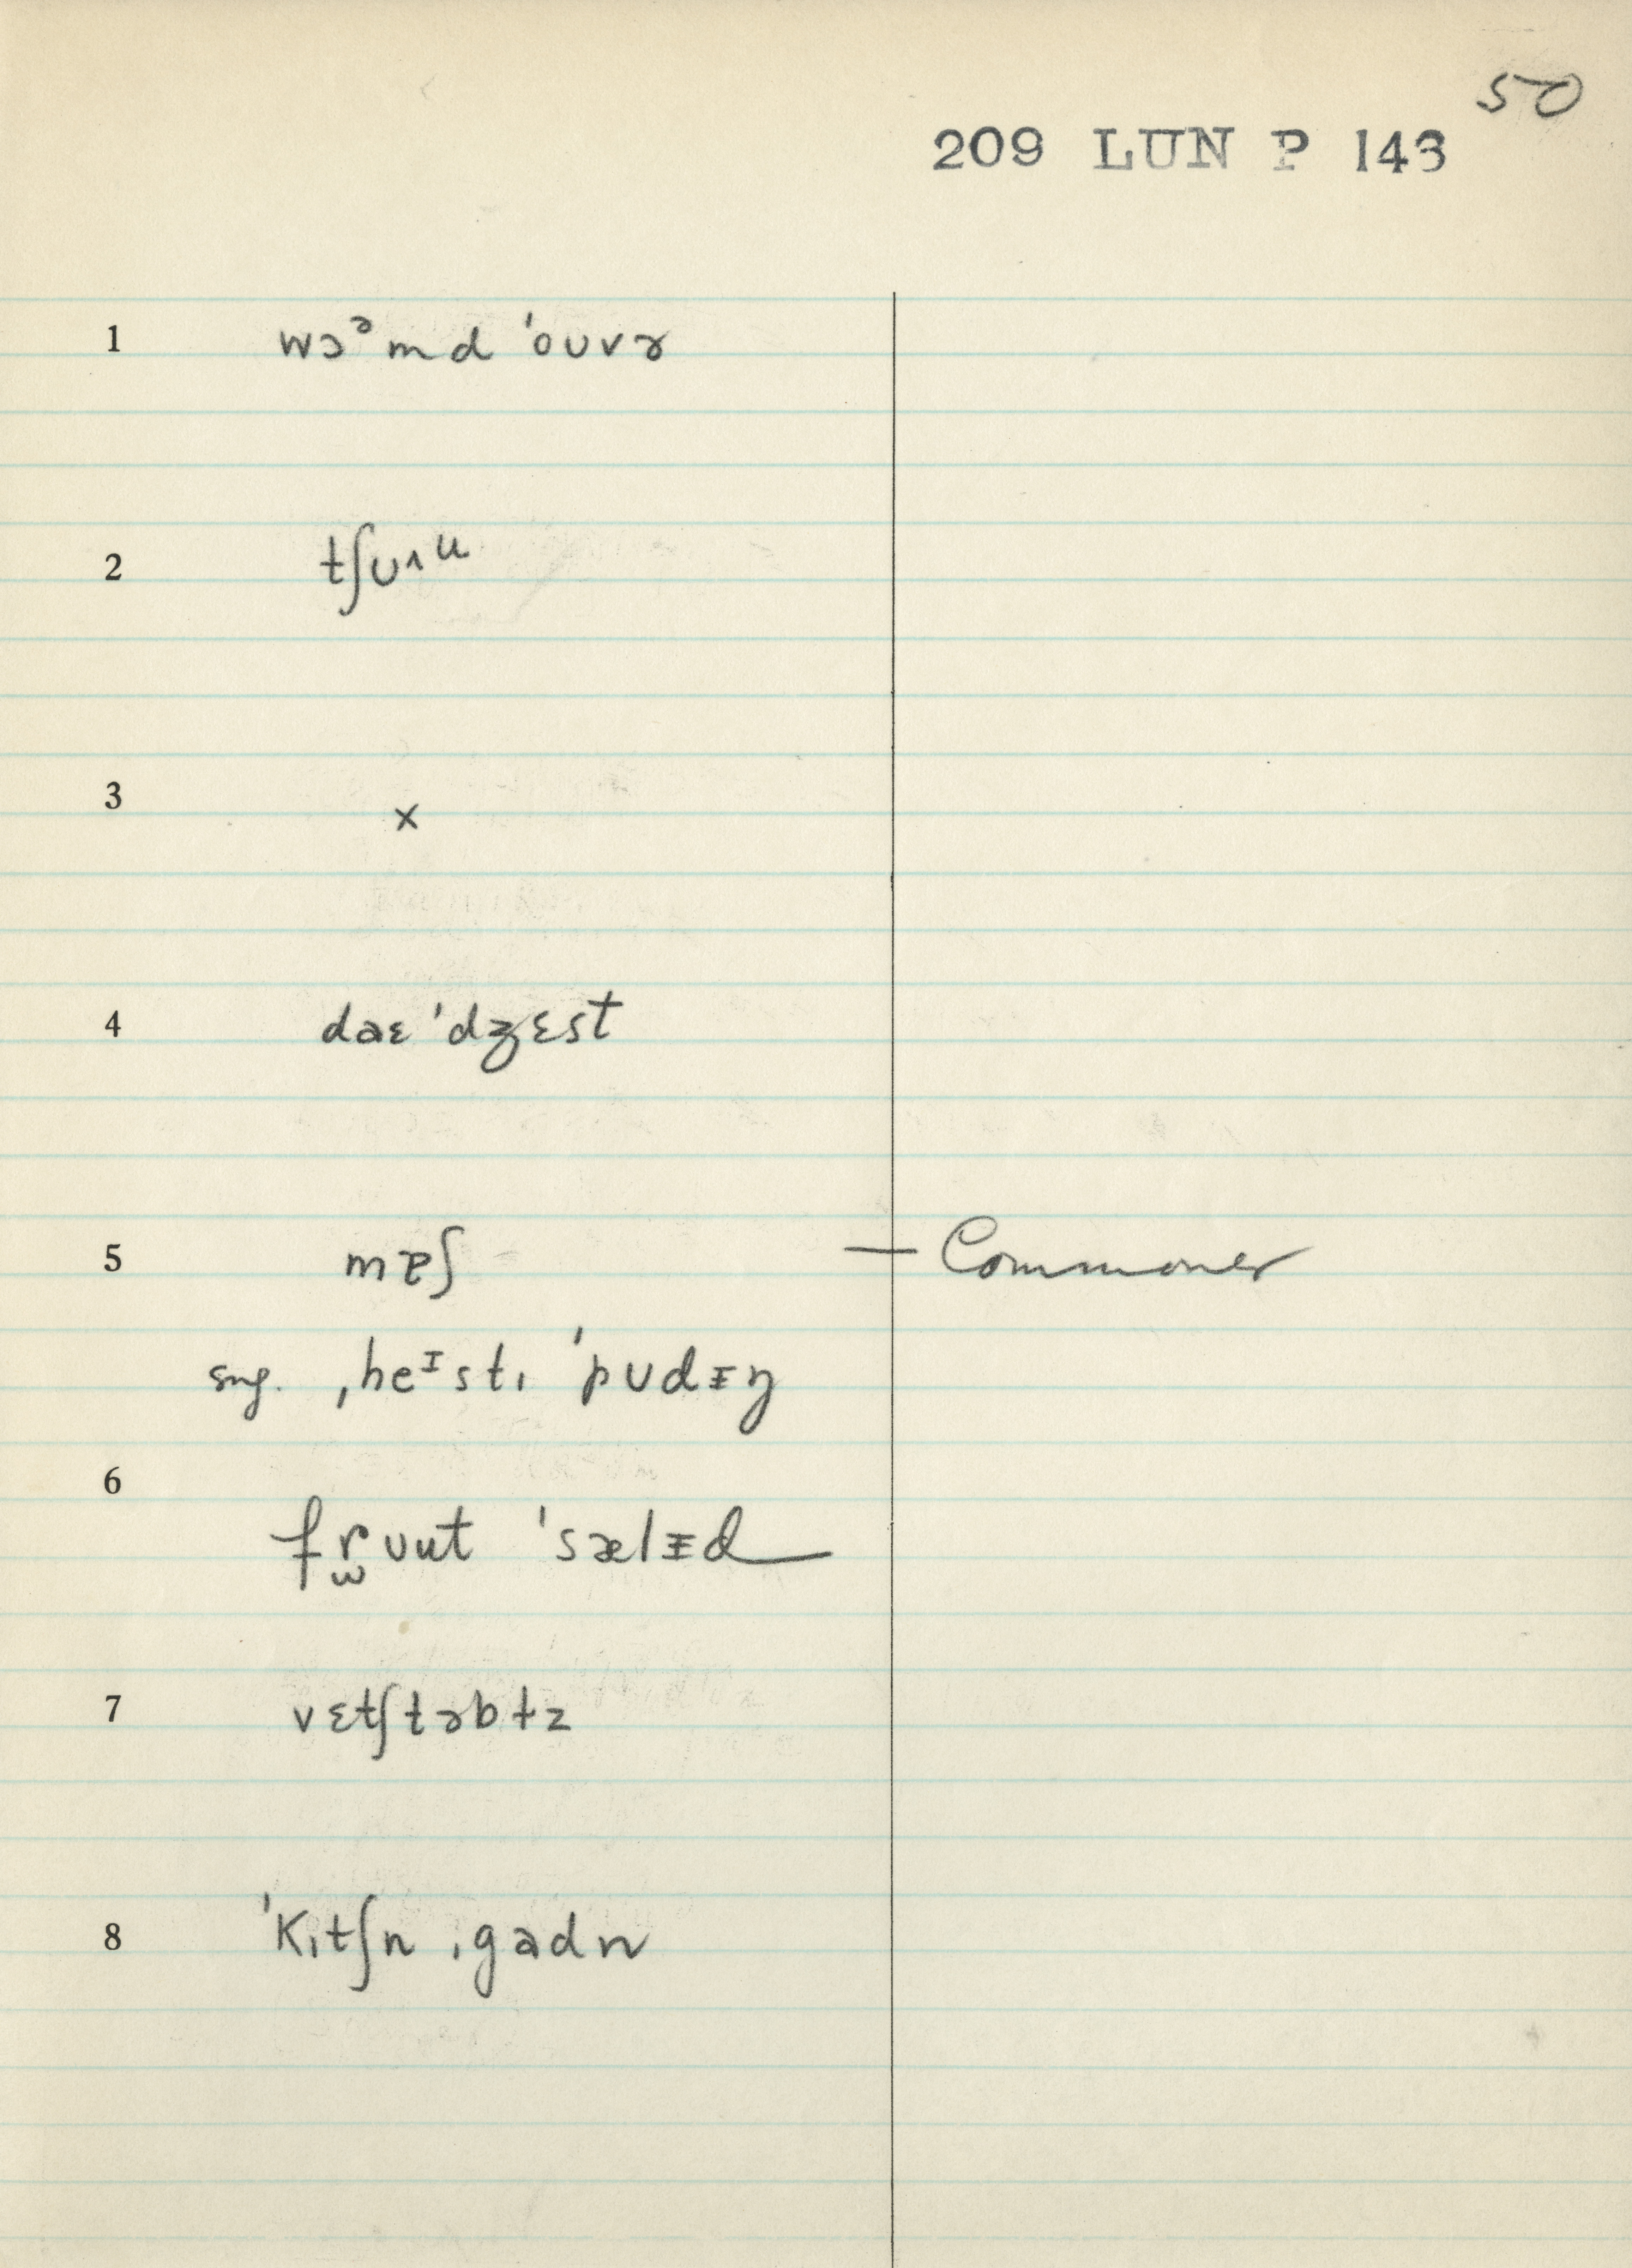 50
209 LUN P 143
1 wɔᵊmd ˈoʊvɚ
2 tʃᴜ˄ᵘ
3 x
4 daɛ ˈdʒɛst
5 mɐʃ — Commoner
sug. ˌheᴵstɪ ˈpᴜdᵻŋ
6
fr̫ᴜut ˈsælᵻd
7 vɛtʃtəbɫz
8 ˈkɪtʃn ˌgadn